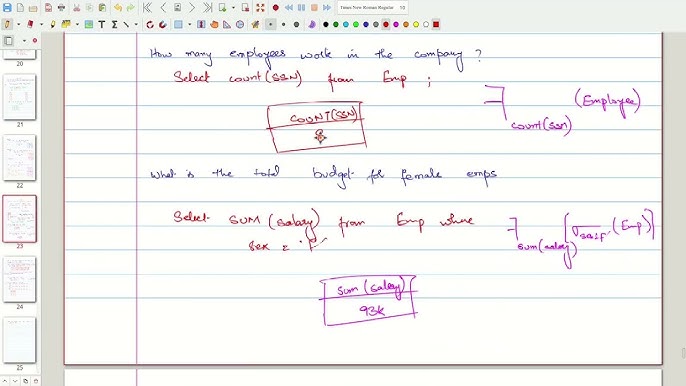 Times New Roman Regular 10
20
21
22
23
24
25
How many employees work in the company ?
Select count(SSN) from Emp ;
(Employee)
count(SSN)
COUNT(SSN)
8
What is the total budget for female emps
Select SUM(Salary) from Emp where
sex = 'F'
(Emp)
sum(salary)
sum(salary)
93k